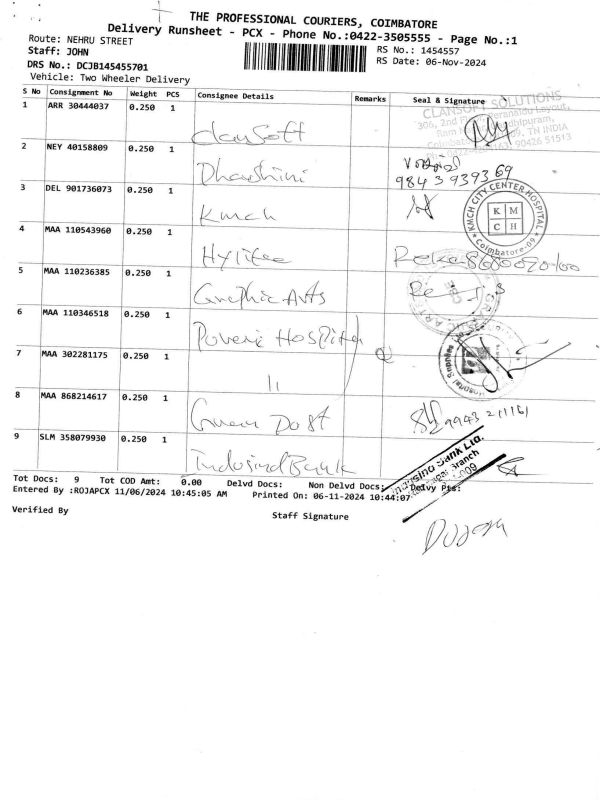 THE PROFESSIONAL COURIERS, COIMBATORE
Delivery Runsheet - PCX - Phone No.:0422-3505555 - Page No.:1
Route: NEHRU STREET
RS No.: 1454557
Staff: JOHN
RS Date: 06-Nov-2024
DRS No.: DCJB145455701
Vehicle: Two Wheeler Delivery
S No Consignment No Weight PCS Consignee Details Remarks Seal & Signature
1 ARR 30444037 0.250 1 clansoft
CLANSOFT SOLUTIONS
306, 2nd Layout,
TN INDIA
90426 51513
2 NEY 40158809 0.250 1 Dharshini
98439 39369
3 DEL 901736073 0.250 1 Kmch
KMCH CITY CENTER HOSPITAL
K M
C H
Coimbatore-09
4 MAA 110543960 0.250 1 Hylitee
5 MAA 110236385 0.250 1 Graphic Arts
6 MAA 110346518 0.250 1 Hospital
7 MAA 302281175 0.250 1 11
8 MAA 868214617 0.250 1
9 SLM 358079930 0.250 1 Indusind Bank
Bank Ltd.
Branch
Tot Docs: 9 Tot COD Amt: 0.00 Delvd Docs: Non Delvd Docs: Delvy Pts:
Entered By :ROJAPCX 11/06/2024 10:45:05 AM Printed On: 06-11-2024 10:44:07
Verified By Staff Signature